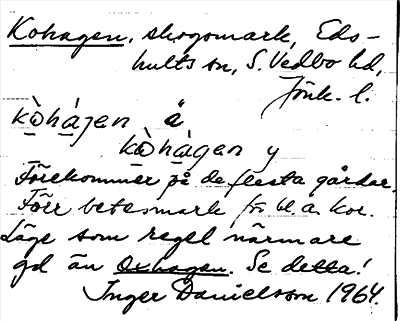 Kohagen, skogsmark, Eds-
hults sn, S. Vedbo hd,
Jönk. l.
kò̱hàgen ä
kò̱hàgen y
Förekommer på de flesta gårdar.
Förr betesmark för bl. a. kor.
Läge som regel närmare
gd än Oxhagen. Se detta!
Inger Danielsson 1964.